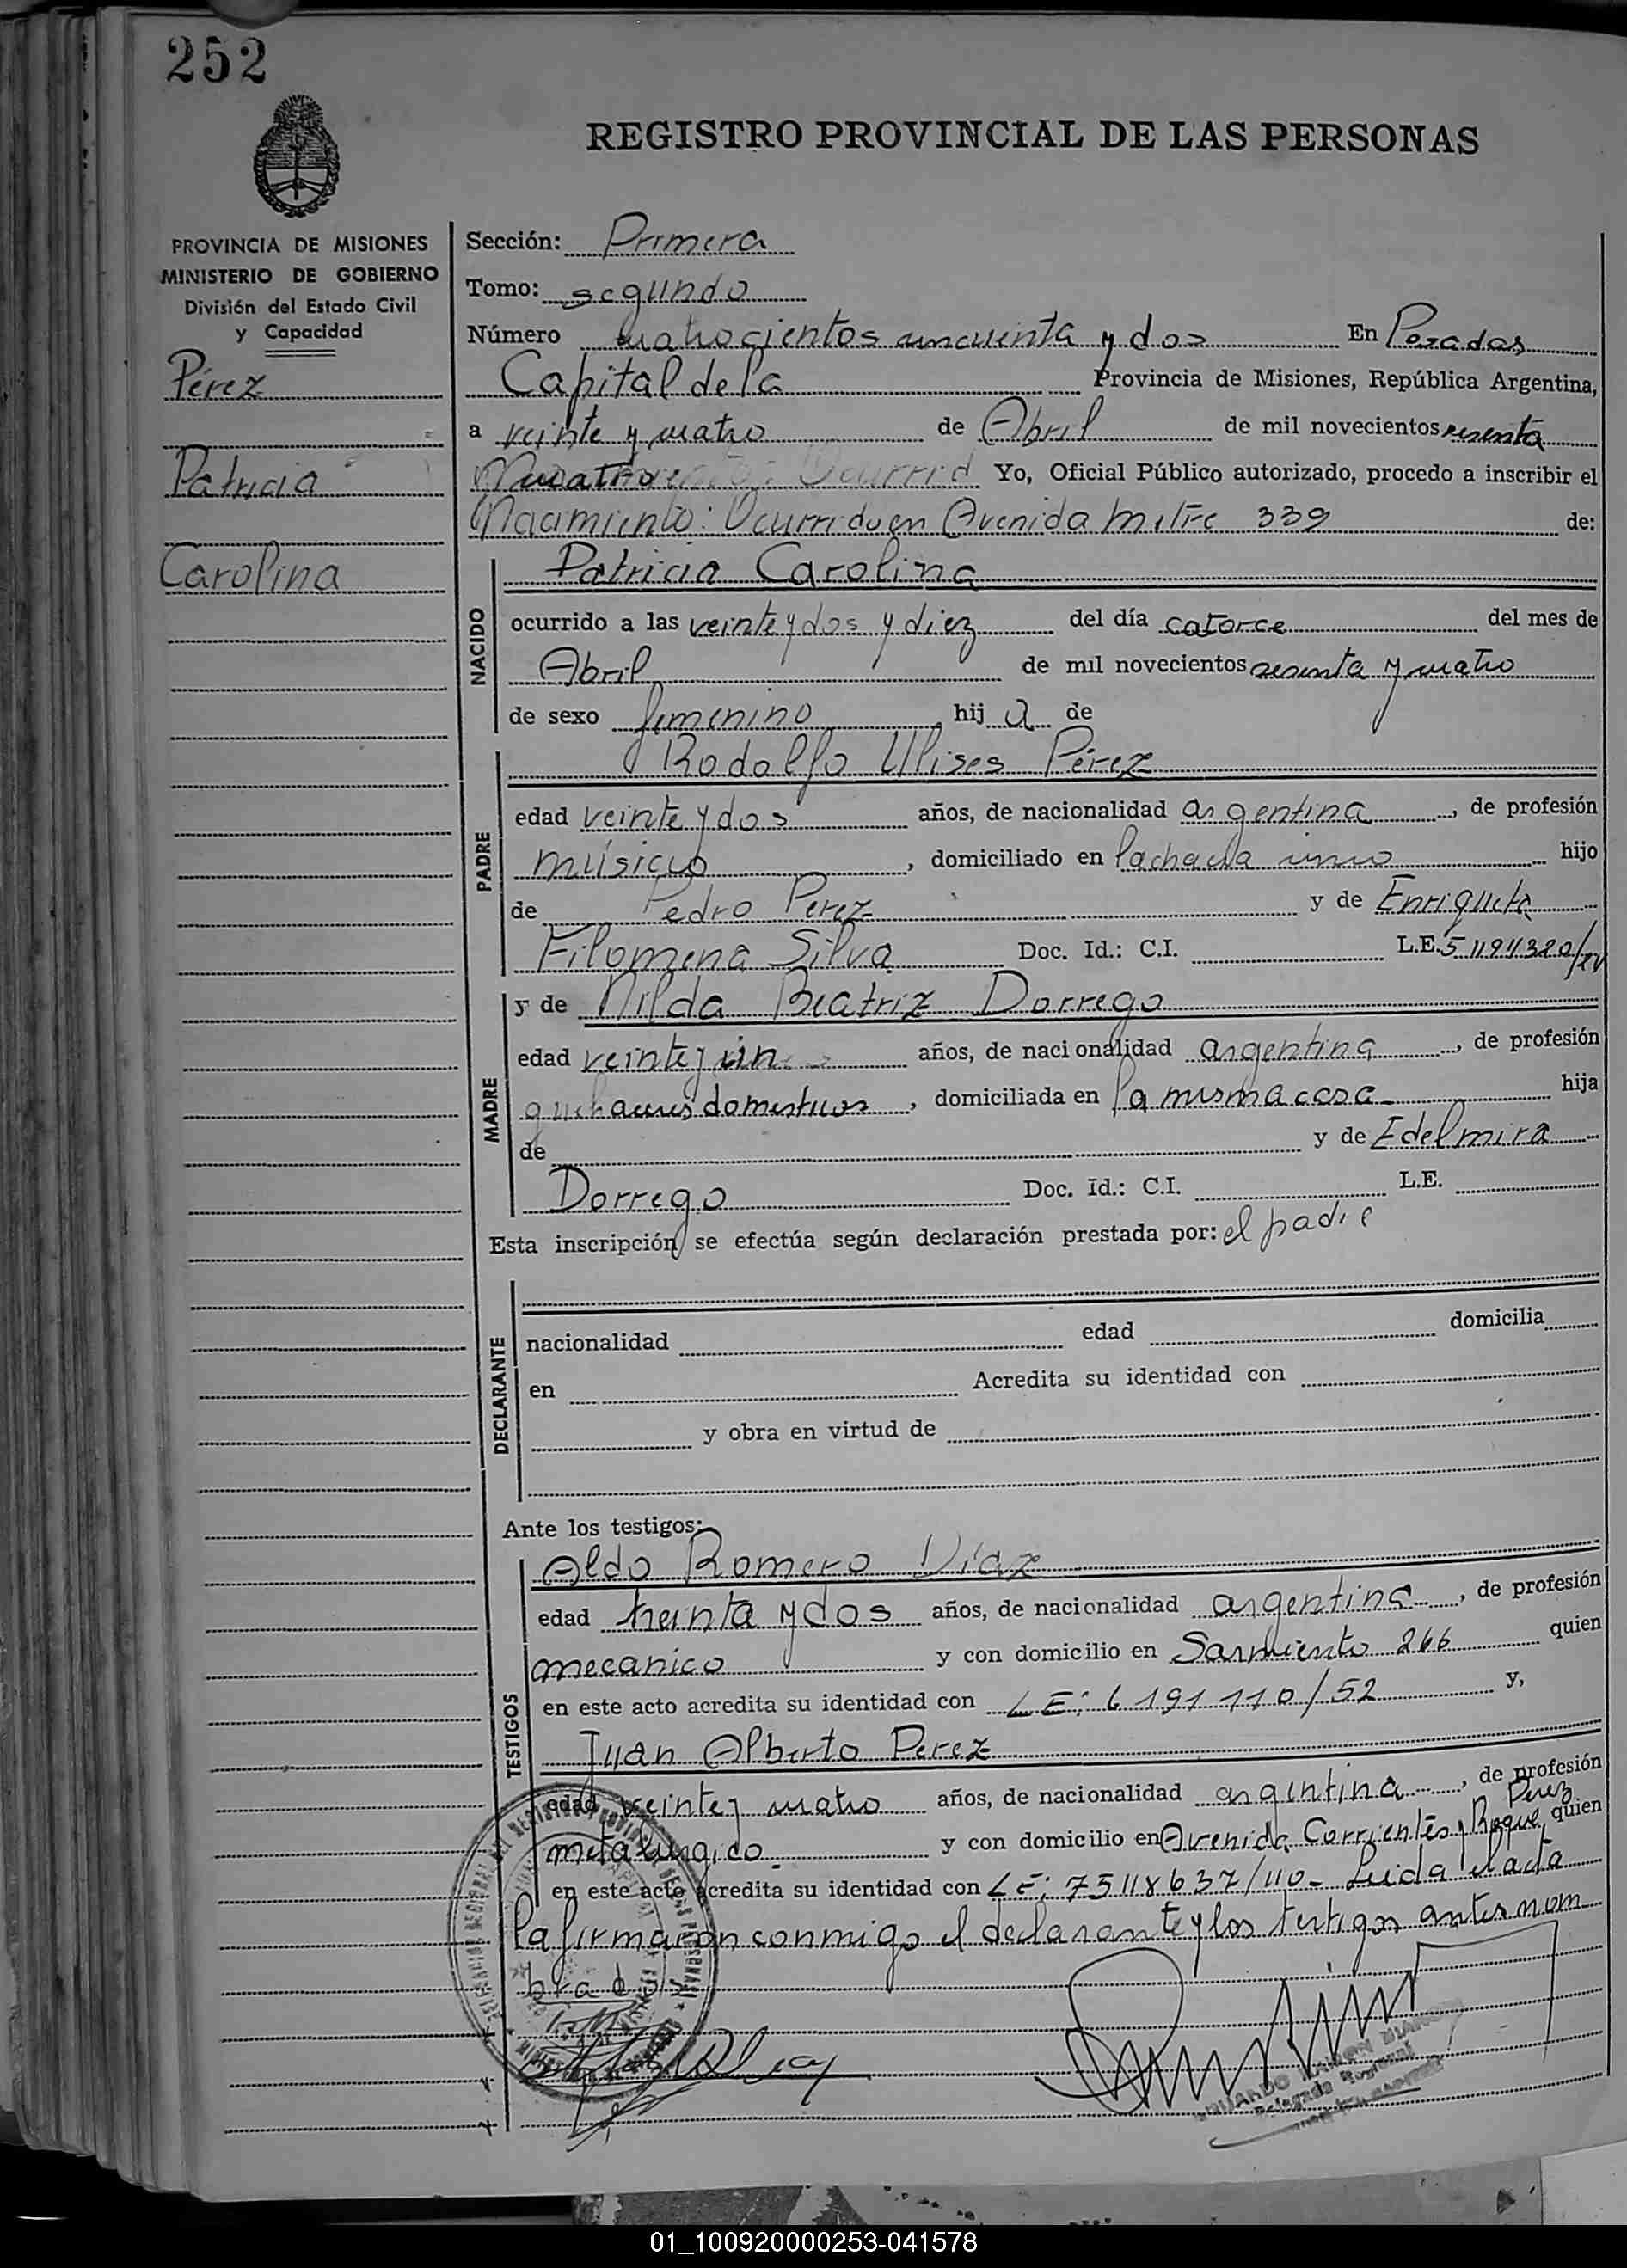 252
REGISTRO PROVINCIAL DE LAS PERSONAS
PROVINCIA DE MISIONES
MINISTERIO DE GOBIERNO
División del Estado Civil
y Capacidad
Pérez
Patricia
Carolina
Sección: Primera
Tomo: segundo
Número cuatrocientos cincuenta y dos En Posadas
Capital de la Provincia de Misiones, República Argentina,
a veinte y cuatro de Abril de mil novecientos sesenta
y cuatro Yo, Oficial Público autorizado, procedo a inscribir el
Nacimiento: Ocurrido en Avenida Mitre 339 de:
NACIDO
Patricia Carolina
ocurrido a las veinte y dos y diez del día catorce del mes de
Abril de mil novecientos sesenta y cuatro
de sexo femenino, hij a de
PADRE
Rodolfo Ulises Pérez
edad veinte y dos años, de nacionalidad argentina, de profesión
músico, domiciliado en hijo
de Pedro Perez y de Enriqueta
Filomena Silva Doc. Id.: C.I. L.E. 51194320/
MADRE
y de Nilda Beatriz Dorrego
edad veinte y un años, de nacionalidad argentina, de profesión
quehaceres domesticos, domiciliada en la misma casa hija
de y de Edelmira
Dorrego Doc. Id.: C.I. L.E.
Esta inscripción se efectúa según declaración prestada por: el padre
DECLARANTE
nacionalidad edad domicilia
en Acredita su identidad con
y obra en virtud de
Ante los testigos:
TESTIGOS
Aldo Romero Diaz
edad treinta y dos años, de nacionalidad argentina, de profesión
mecanico y con domicilio en Sarmiento 266 quien
en este acto acredita su identidad con LE: 6191110/52 y,
Juan Alberto Perez
edad veinte y cuatro años, de nacionalidad argentina, de profesión
Perez
metalurgico y con domicilio en Avenida Corrientes y Roque quien
en este acto acredita su identidad con LE: 75118637/110- Leida el acta
la firmaron conmigo el declarante y los testigos antes nom
brados
Delegado Regional
01_100920000253-041578